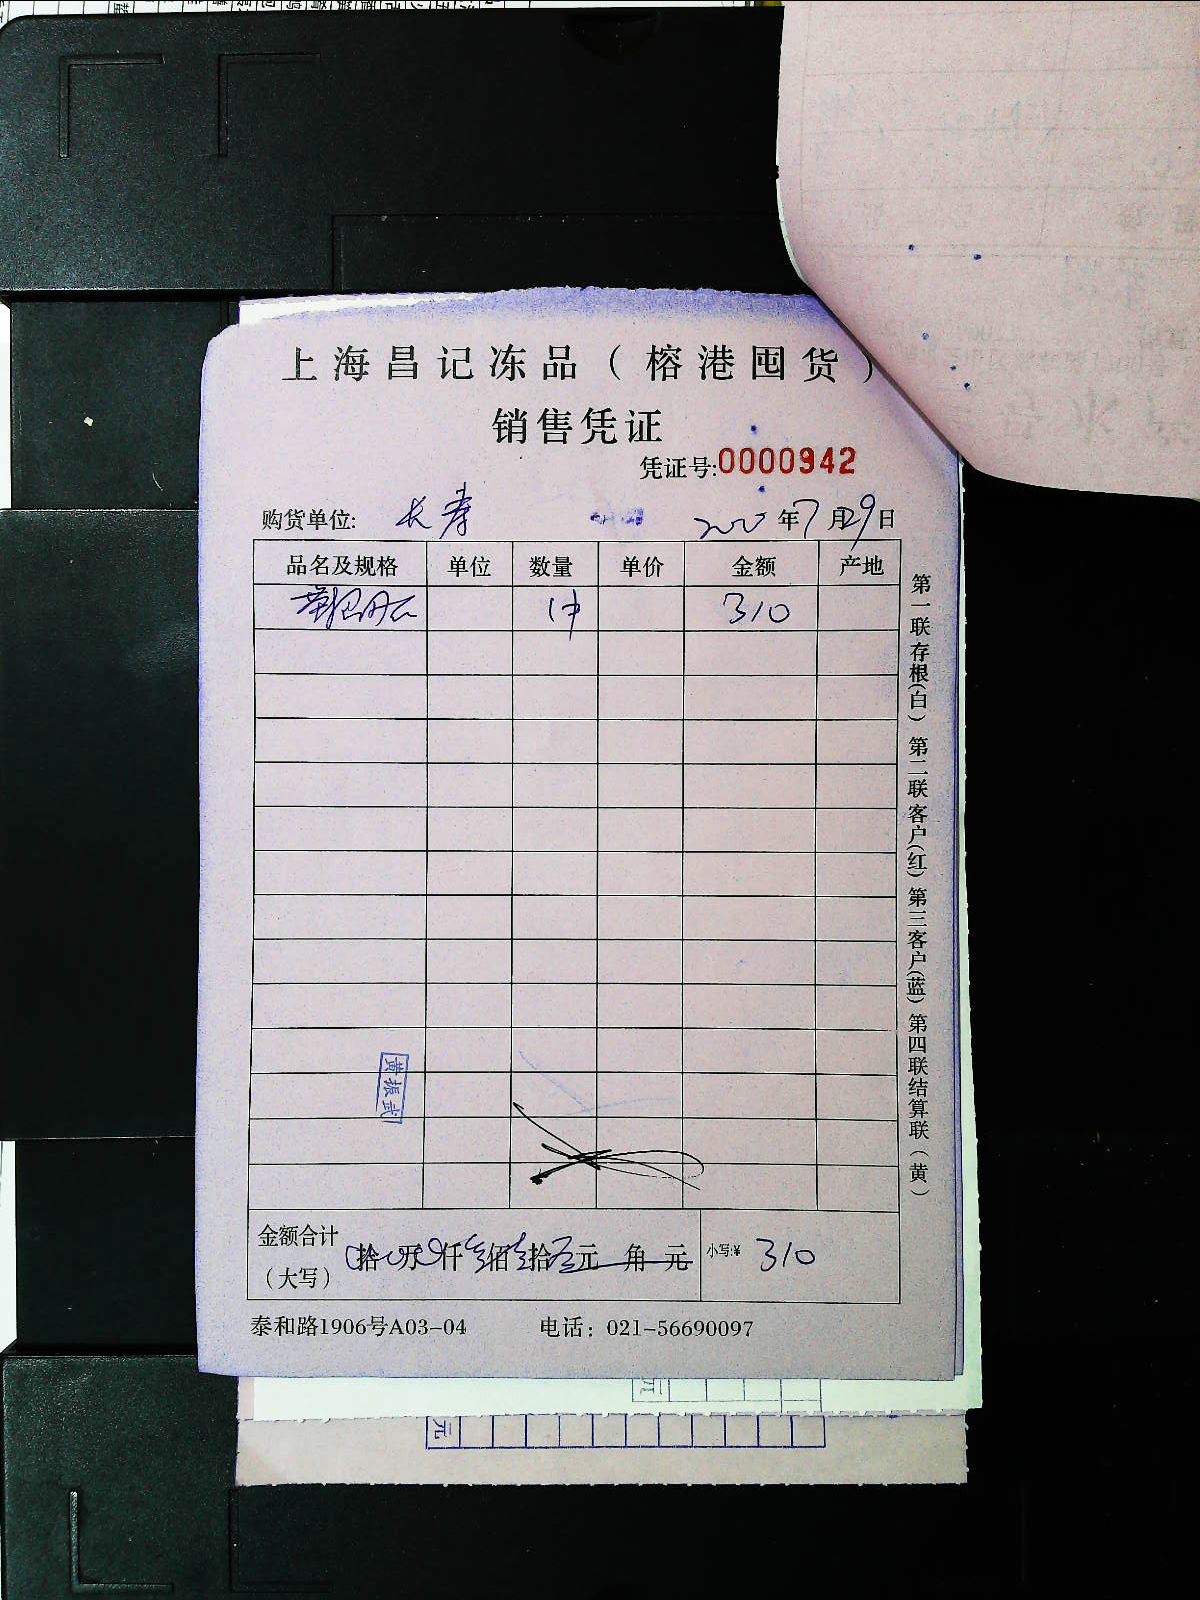 上海昌记冻品（榕港囤货）
销售凭证
凭证号:0000942
购货单位: 长寿
年7月29日
品名及规格 单位 数量 单价 金额 产地
1件 310
第一联存根(白) 第二联客户(红) 第三客户(蓝) 第四联结算联(黄)
黄振武
金额合计
(大写) 拾 万 仟 叁佰 壹拾 元 角 元 小写:¥ 310
泰和路1906号A03-04 电话：021-56690097
元